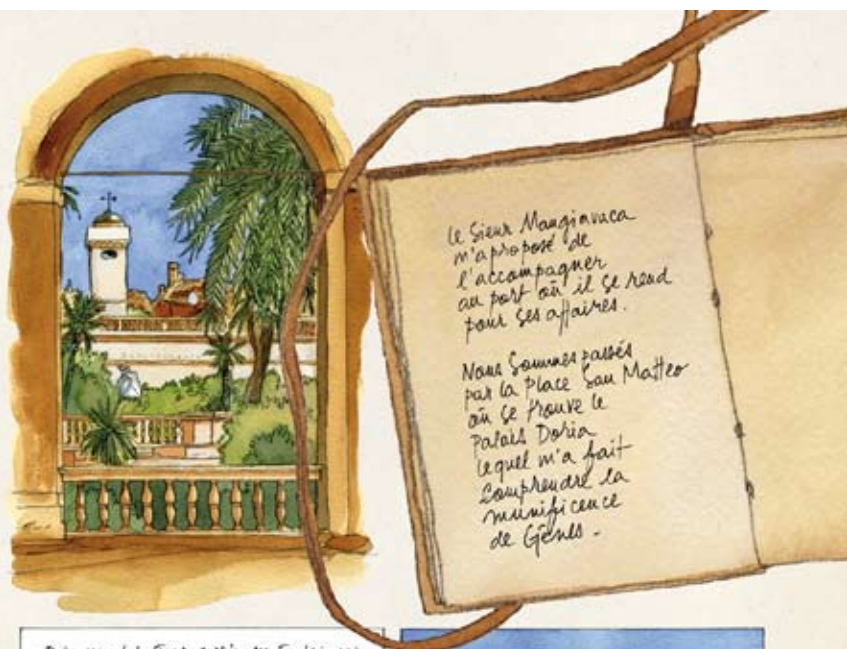 Le Sieur Mangiavaca
m'a proposé de
l'accompagner
au port où il se rend
pour ses affaires.
Nous sommes passés
par la place San Matteo
où se trouve le
Palais Doria
lequel m'a fait
comprendre la
munificence
de Gênes.